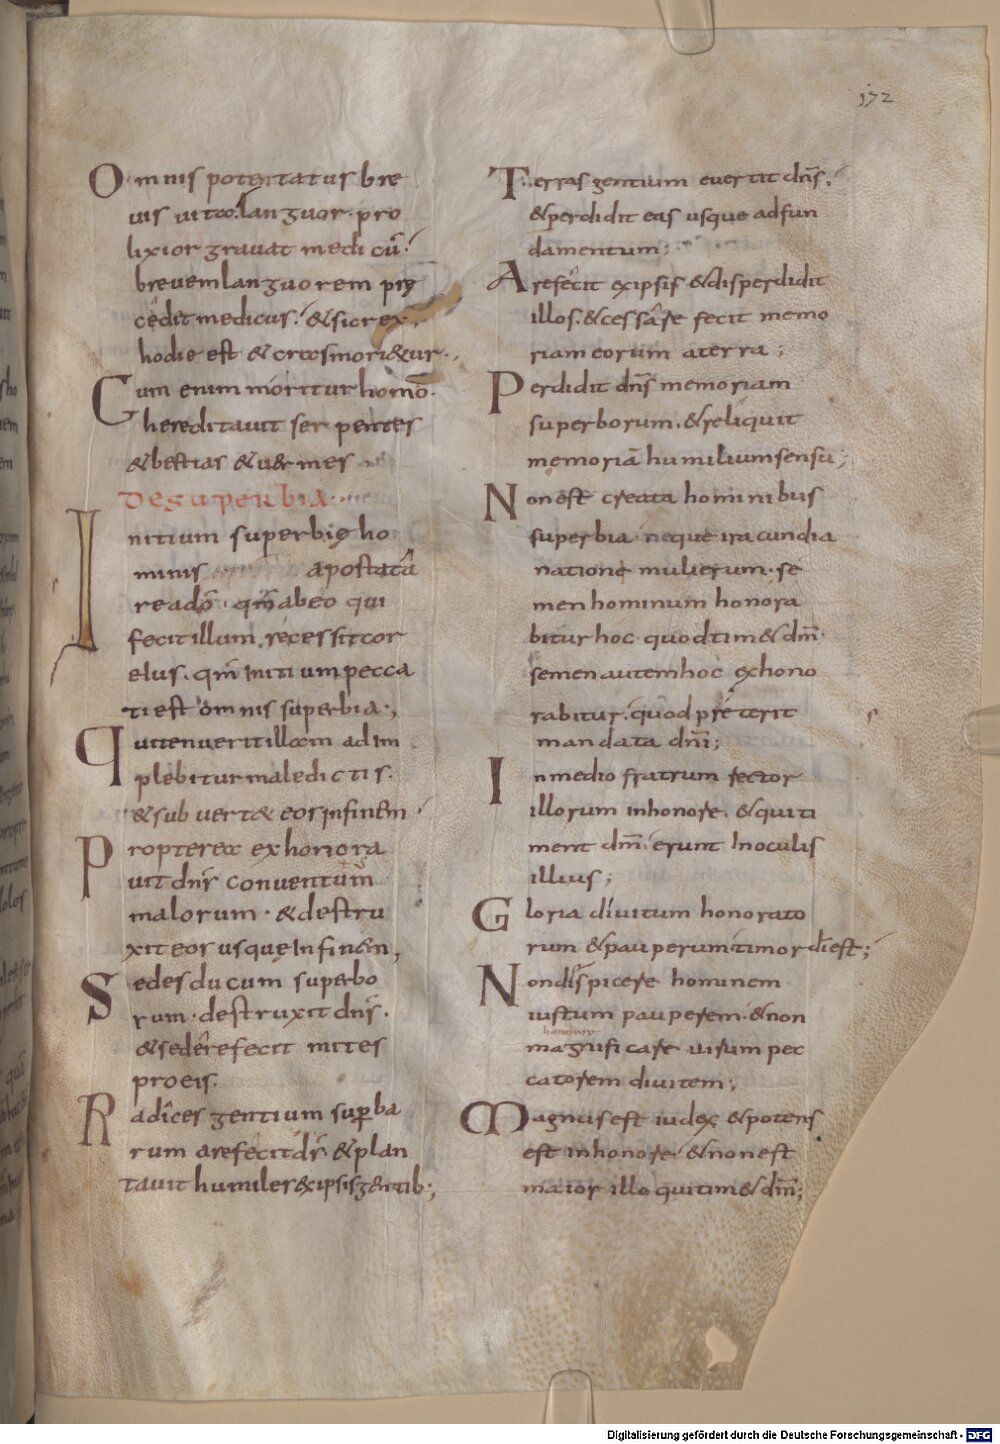 172
Omnis potestatus bre
uis uita. languor pro
lixior grauat medicū.
breuem languorem pre
cędit medicus. & sic rex
hodie est & cras mori&ur.
Cum enim moritur homo.
hereditauit serpentes
& bestias & uermes
De superbia.
Initium superbię ho
minis apostatā
re a dō. qm̄ ab eo qui
fecit illum. recessit cor
eius. qm̄ initium pecca
ti est omnis superbia;
qui tenuerit illam adim
plebitur maledictis.
& subuert& eos in finem
Propterea exhonora
uit dn̄s conuentum
malorum. & destru
xit eos usque in finem,
Sedes ducum superbo
rum destruxit dn̄s.
& sedere fecit mites
pro eis.
Radices gentium superba
rum arefecit ds̄ & plan
tauit humiles ex ipsis gentib;
Terras gentium euertit dn̄s.
& perdidit eas usque ad fun
damentum;
Arefecit ex ipsis & disperdidit
illos. & cessare fecit memo
riam eorum a terra;
Perdidit dn̄s memoriam
superborum. & reliquit
memoriā humilium sensu;
Non est creata hominibus
superbia neque iracundia
natione mulierum. se
men hominum honora
bitur hoc quod tim& dn̄m.
semen autem hoc exhono
rabitur. quod preterit
mandata dn̄i;
In medio fratrum rector
illorum in honore. & qui ti
ment dn̄m. erunt in oculis
illius;
Gloria diuitum honorato
rum & pauperum timor dī est;
Non dispicere hominem
iustum pauperem. & non
magnificare uirum pec
catorem diuitem;
Magnus est iudex & potens
est in honore & non est
maior illo qui tim& dn̄m;
Digitalisierung gefördert durch die Deutsche Forschungsgemeinschaft - DFG